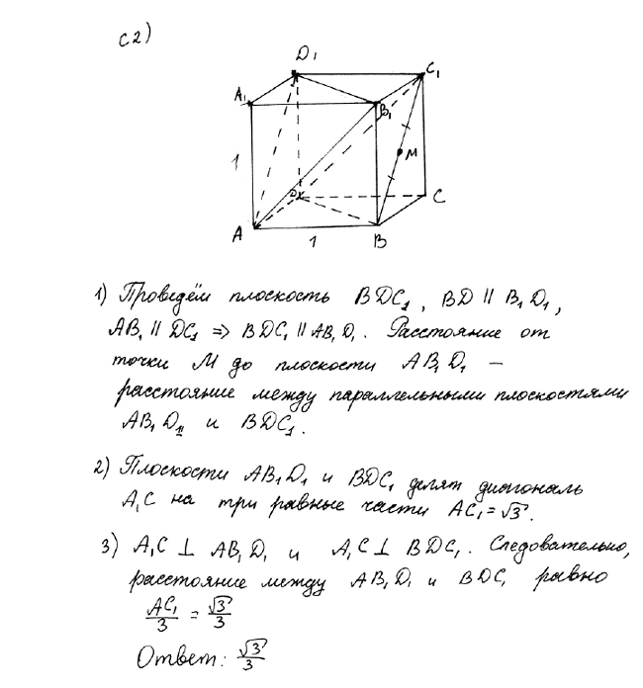 С2)
D₁
C₁
A₁
B₁
1
M
D
C
A
B
1
1) Проведём плоскость BDC₁, BD || B₁D₁,
AB₁ || DC₁ ⇒ BDC₁ || AB₁D₁. Расстояние от
точки М до плоскости AB₁D₁ —
расстояние между параллельными плоскостями
AB₁D₁ и BDC₁.
2) Плоскости AB₁D₁ и BDC₁ делят диагональ
A₁C на три равные части AC₁=√3.
3) A₁C ⊥ AB₁D₁ и A₁C ⊥ BDC₁. Следовательно,
расстояние между AB₁D₁ и BDC₁ равно
AC₁/3 = √3/3
Ответ: √3/3